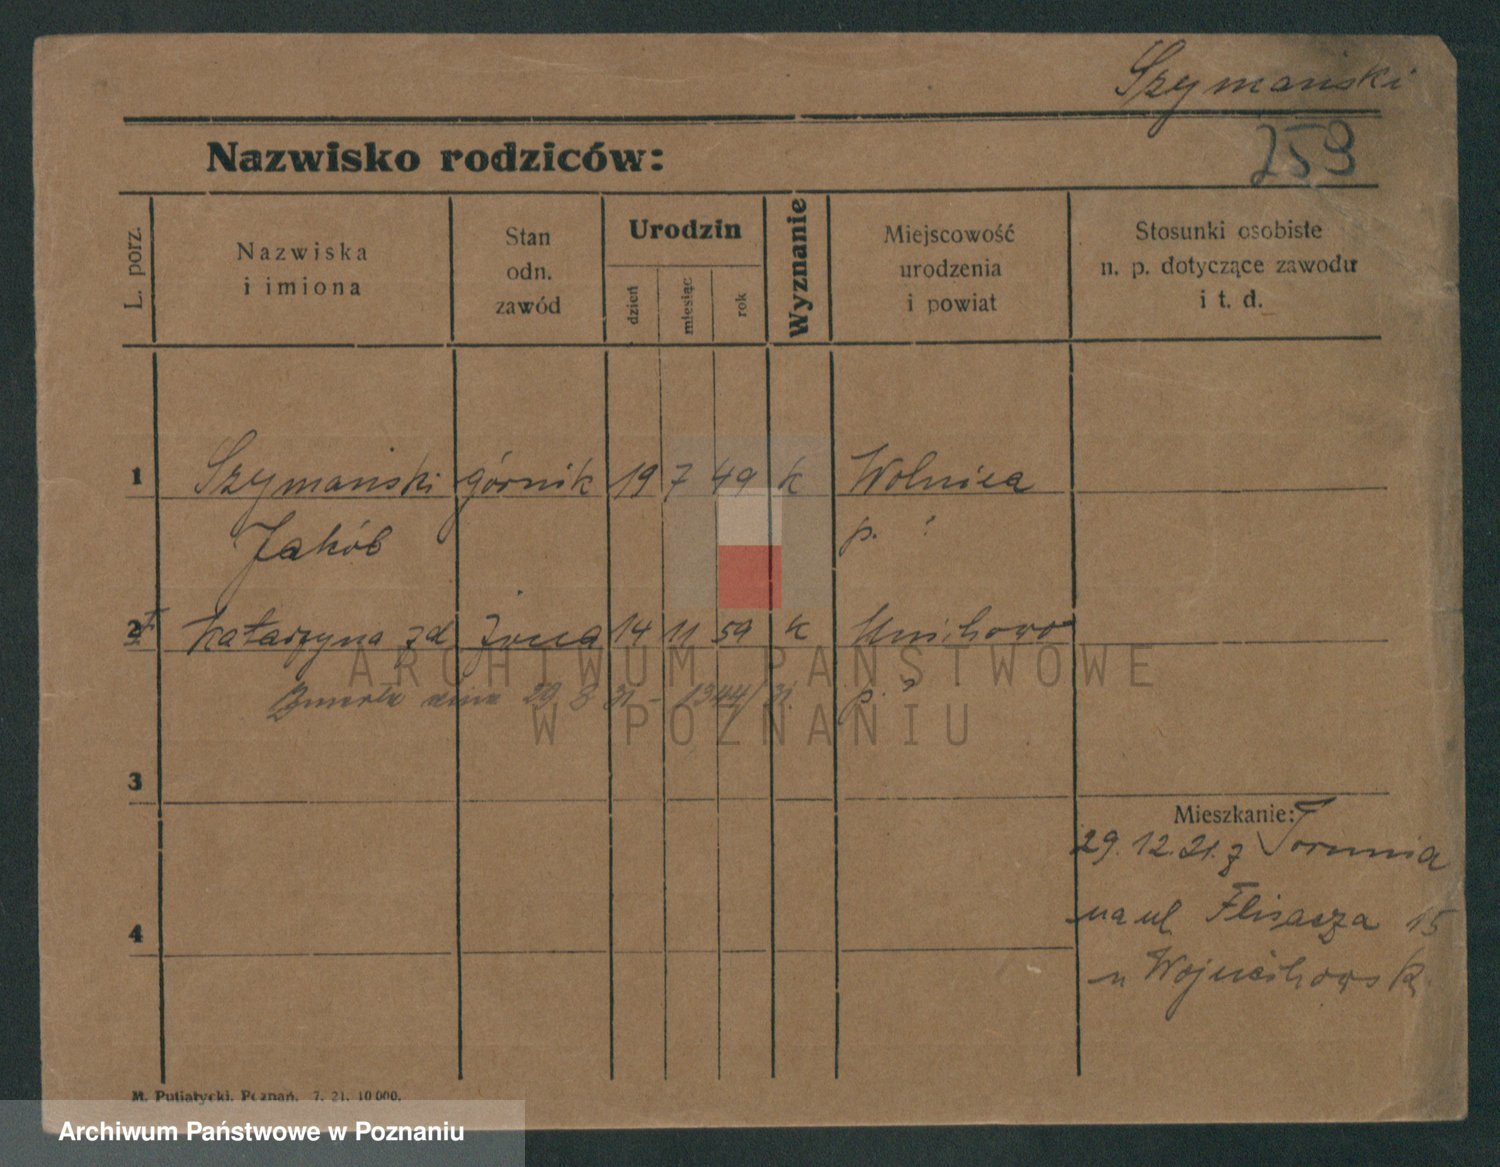 Szymański
259
Nazwisko rodziców:
L. porz.
Nazwiska
i imiona
Stan
odn.
zawód
Urodzin
dzień
miesiąc
rok
Wyznanie
Miejscowość
urodzenia
i powiat
Stosunki osobiste
n. p. dotyczące zawodu
i t. d.
1 Szymański górnik 19 7 49 k Wolnica
Jakób p. ?
2 Katarzyna zd 14 11 59 k
Zmarła dnia 29 8 31 - 1344/31. p. ?
ARCHIWUM PAŃSTWOWE
W POZNANIU
3
Mieszkanie:
29.12.21. z Torunia
4 na ul. Flisacza 15
u
M. Putiatycki, Poznań. 7. 21. 10 000.
Archiwum Państwowe w Poznaniu